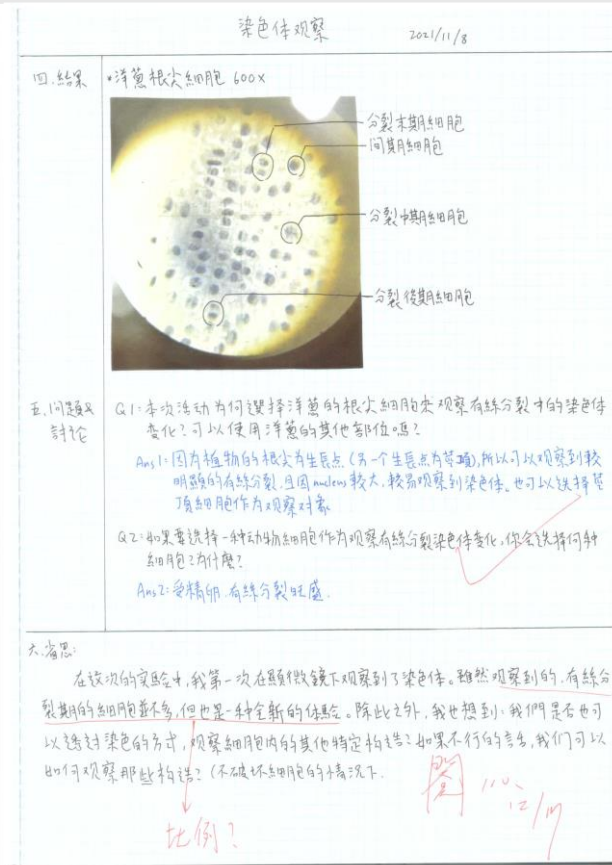 染色体观察 2021/11/8
四.結果
洋蔥根尖細胞 600x
分裂末期細胞
间期細胞
分裂中期細胞
分裂後期細胞
五.问題與討论
Q1:本次活动为何選择洋蔥的根尖細胞來观察有絲分裂中的染色体
變化?可以使用洋蔥的其他部位嗎?
Ans1:因为植物的根尖为生長点(另一个生長点为莖頂),所以可以观察到較
明顯的有絲分裂,且因nucleus較大,較易观察到染色体。也可以选择莖
頂細胞作为观察对象
Q2:如果要选择一种动物細胞作为观察有絲分裂染色体变化,你会选择何种
細胞?为什麼?
Ans2:受精卵.有絲分裂旺盛.
六.省思:
在该次的实驗中,我第一次在顯微鏡下观察到了染色体。雖然观察到的,有絲分
裂期的細胞並不多,但也是一种全新的体驗。除此之外,我也想到:我們是否也可
以透过染色的方式,观察細胞內的其他特定构造?如果不行的話,我們可以
如何观察那些构造?(不破坏細胞的情况下.
比例?
閱 110.
12/17